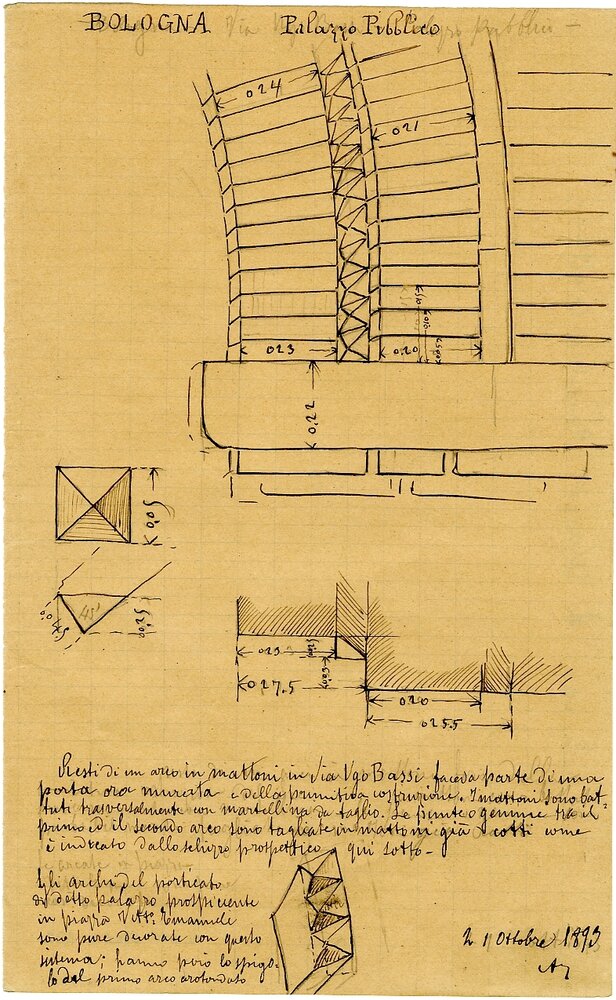 BOLOGNA Palazzo Pubblico
0 24
0 21
0 23
0.20
0.22
45°
0 23
0 27.5
0 20
0 25.5
Resti di un arco in mattoni in Via Ugo Bassi faceva parte di una
porta ora murata e della primitiva costruzione. I mattoni sono bat-
tuti trasversalmente con martellina da taglio. Le punte o gemme tra il
primo ed il secondo arco sono tagliate in mattoni già cotti come
è indicato dallo schizzo prospettico qui sotto -
Gli archi del porticato
di detto palazzo prospicente
in piazza Vitt. Emanuele
sono pure decorate con questo
sistema; hanno però lo spigo-
lo del primo arco arotondato
2 Ottobre 1893